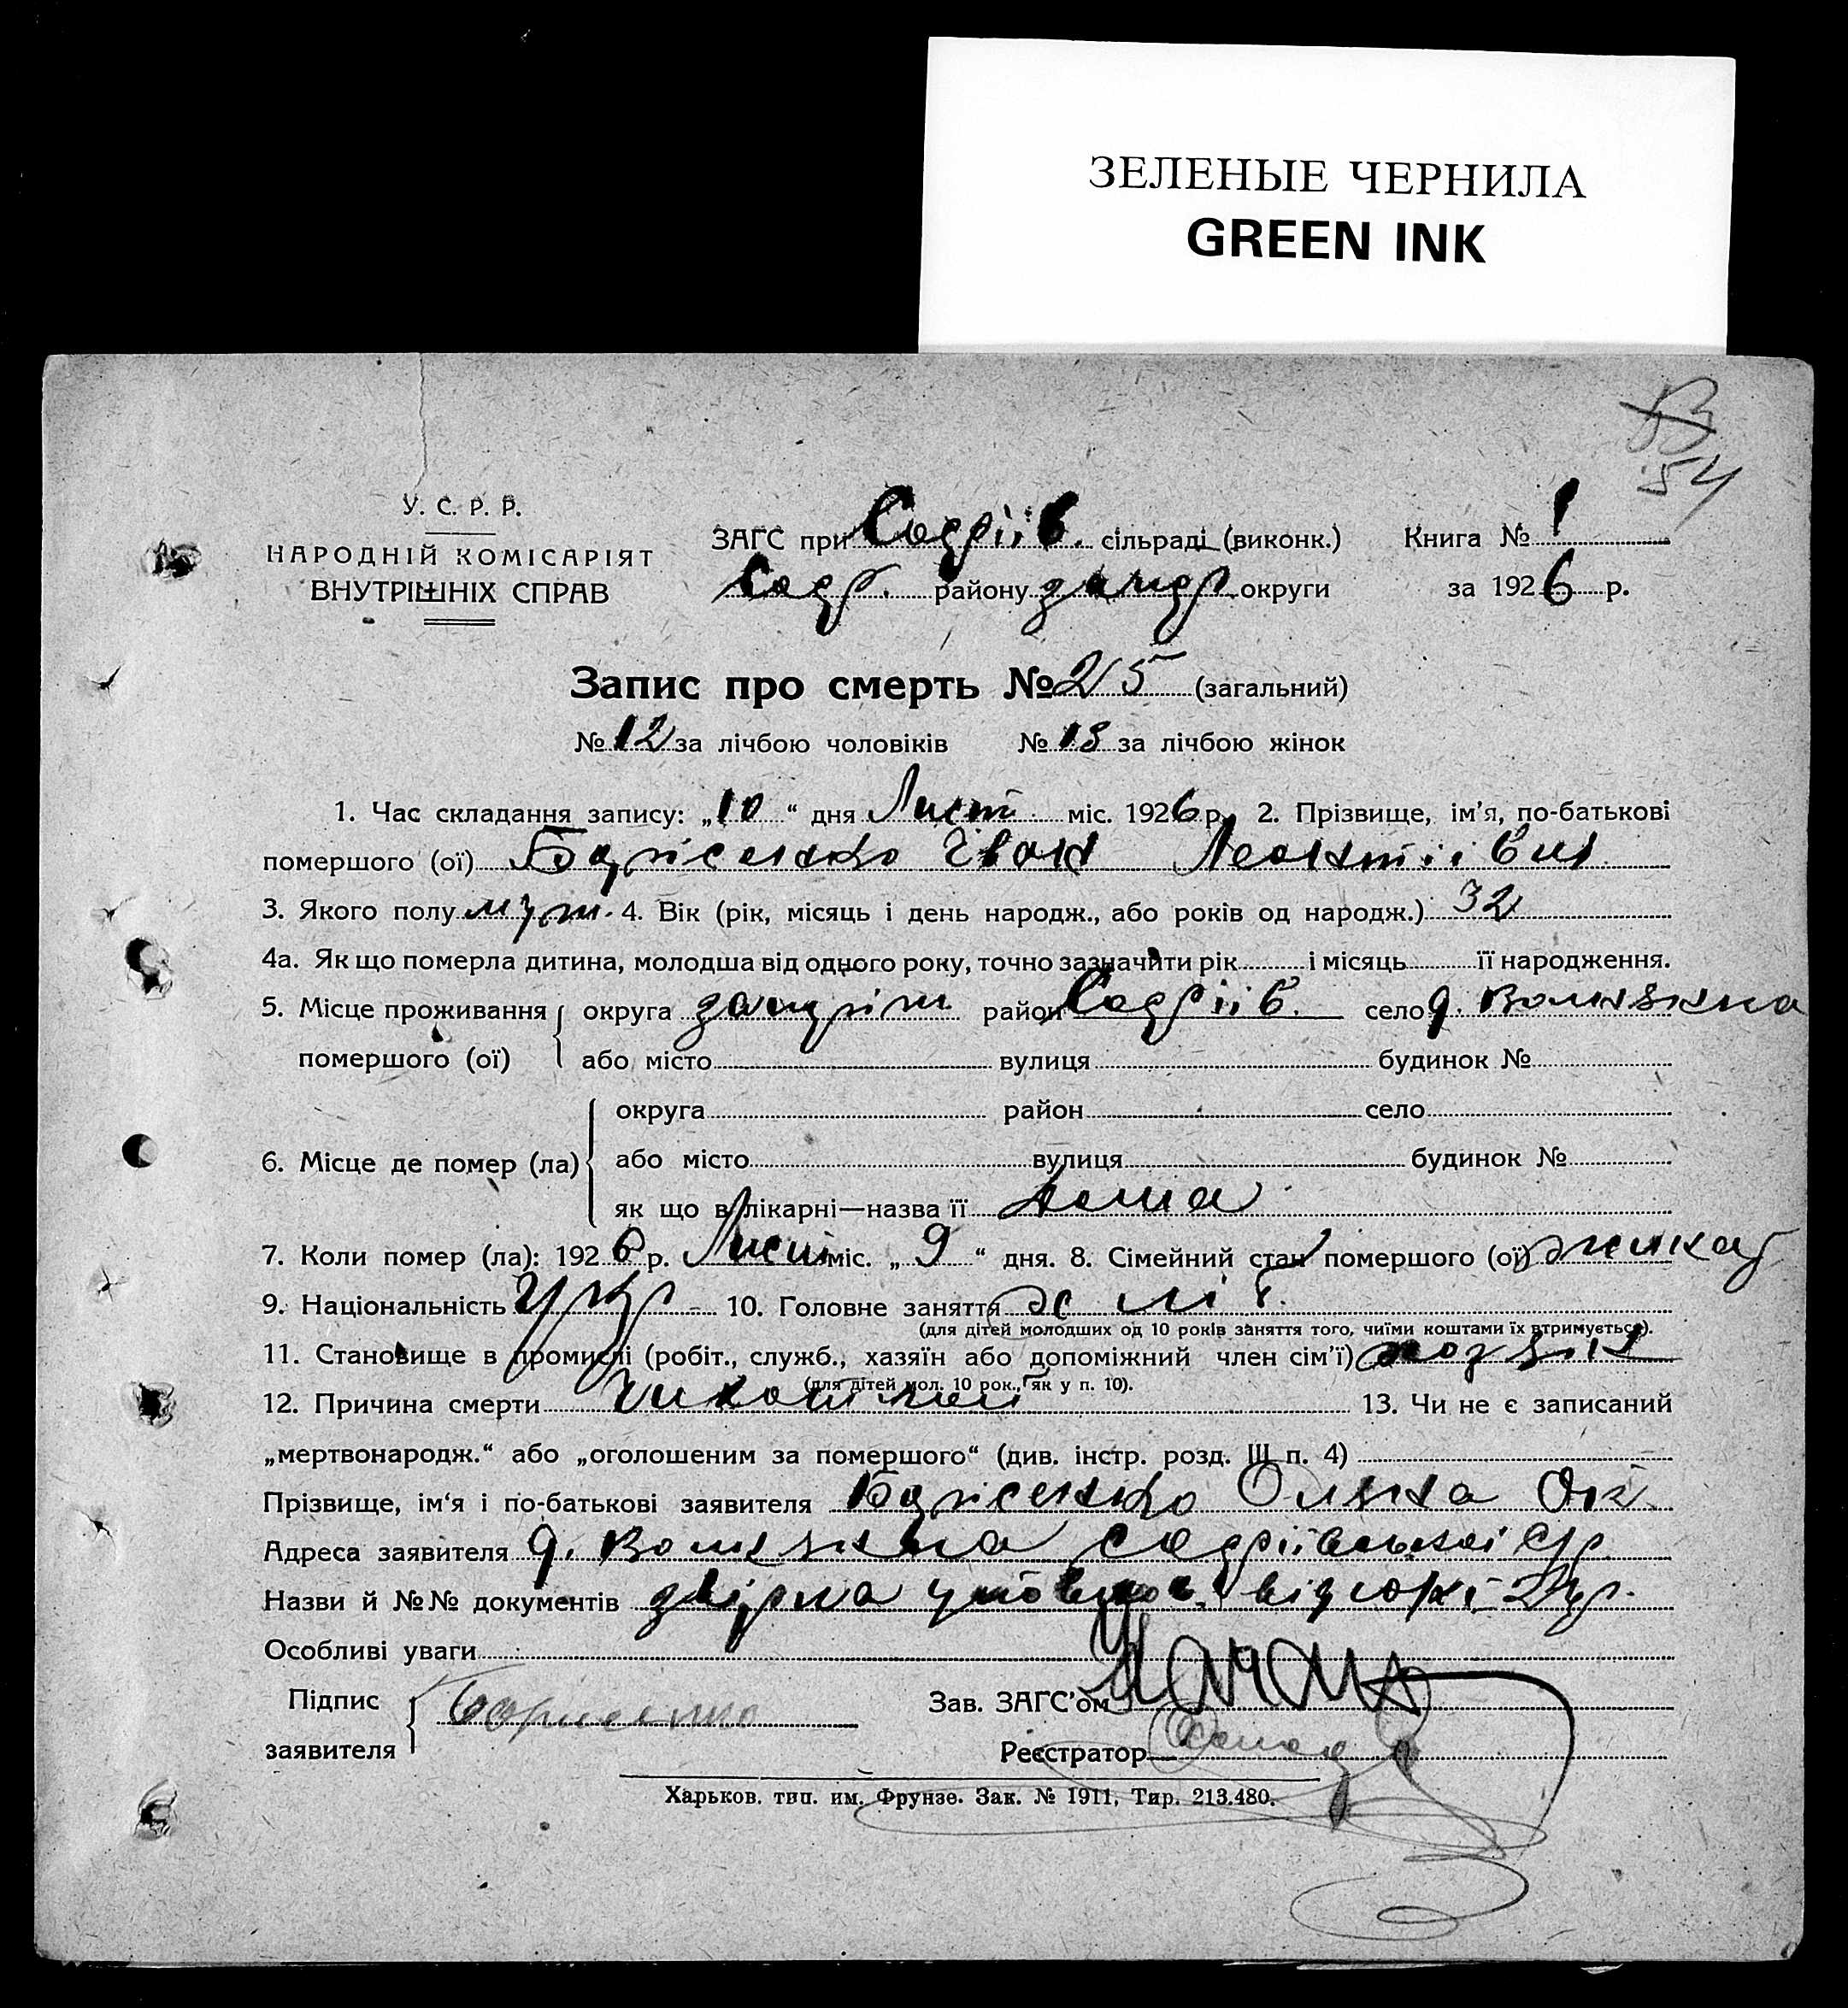 ЗЕЛЕНЫЕ ЧЕРНИЛА
GREEN INK
54
У. С. Р. Р.
НАРОДНІЙ КОМІСАРІЯТ
ВНУТРІШНІХ СПРАВ
ЗАГС при Софіїв. сільраді (виконк.) Книга № 1
Соф. району округи за 1926 р.
Запис про смерть № 25 (загальний)
№ 12 за лічбою чоловіків № 13 за лічбою жінок
1. Час складання запису: „10“ дня Лист. міс. 1926 р. 2. Прізвище, ім'я, по-батькові
помершого (ої) Борисенко Іван Леонтіівич
3. Якого полу муж. 4. Вік (рік, місяць і день народж., або років од народж.) 32
4а. Як що померла дитина, молодша від одного року, точно зазначити рік і місяць її народження.
5. Місце проживання округа запоріж район Софіїв. село
помершого (ої) або місто вулиця будинок №
округа район село
6. Місце де помер (ла) або місто вулиця будинок №
як що в лікарні—назва її дома
7. Коли помер (ла): 1926 р. Лист міс. „9“ дня. 8. Сімейний стан помершого (ої) жинат
9. Національність Укр 10. Головне заняття хліб.
(для дітей молодших од 10 років заняття того, чиїми коштами їх втримується).
11. Становище в промислі (робіт., служб., хазяїн або допоміжний член сім'ї) хозяїн
(для дітей мол. 10 рок., як у п. 10).
12. Причина смерти 13. Чи не є записаний
„мертвонародж.“ або „оголошеним за помершого“ (див. інстр. розд. III п. 4)
Прізвище, ім'я і по-батькові заявителя Борисенко
Адреса заявителя Софіївської с/р.
Назви й №№ документів
Особливі уваги
Підпис Борисенко Зав. ЗАГС'ом
заявителя Реєстратор
Харьков. тип. им. Фрунзе. Зак. № 1911, Тир. 213.480.